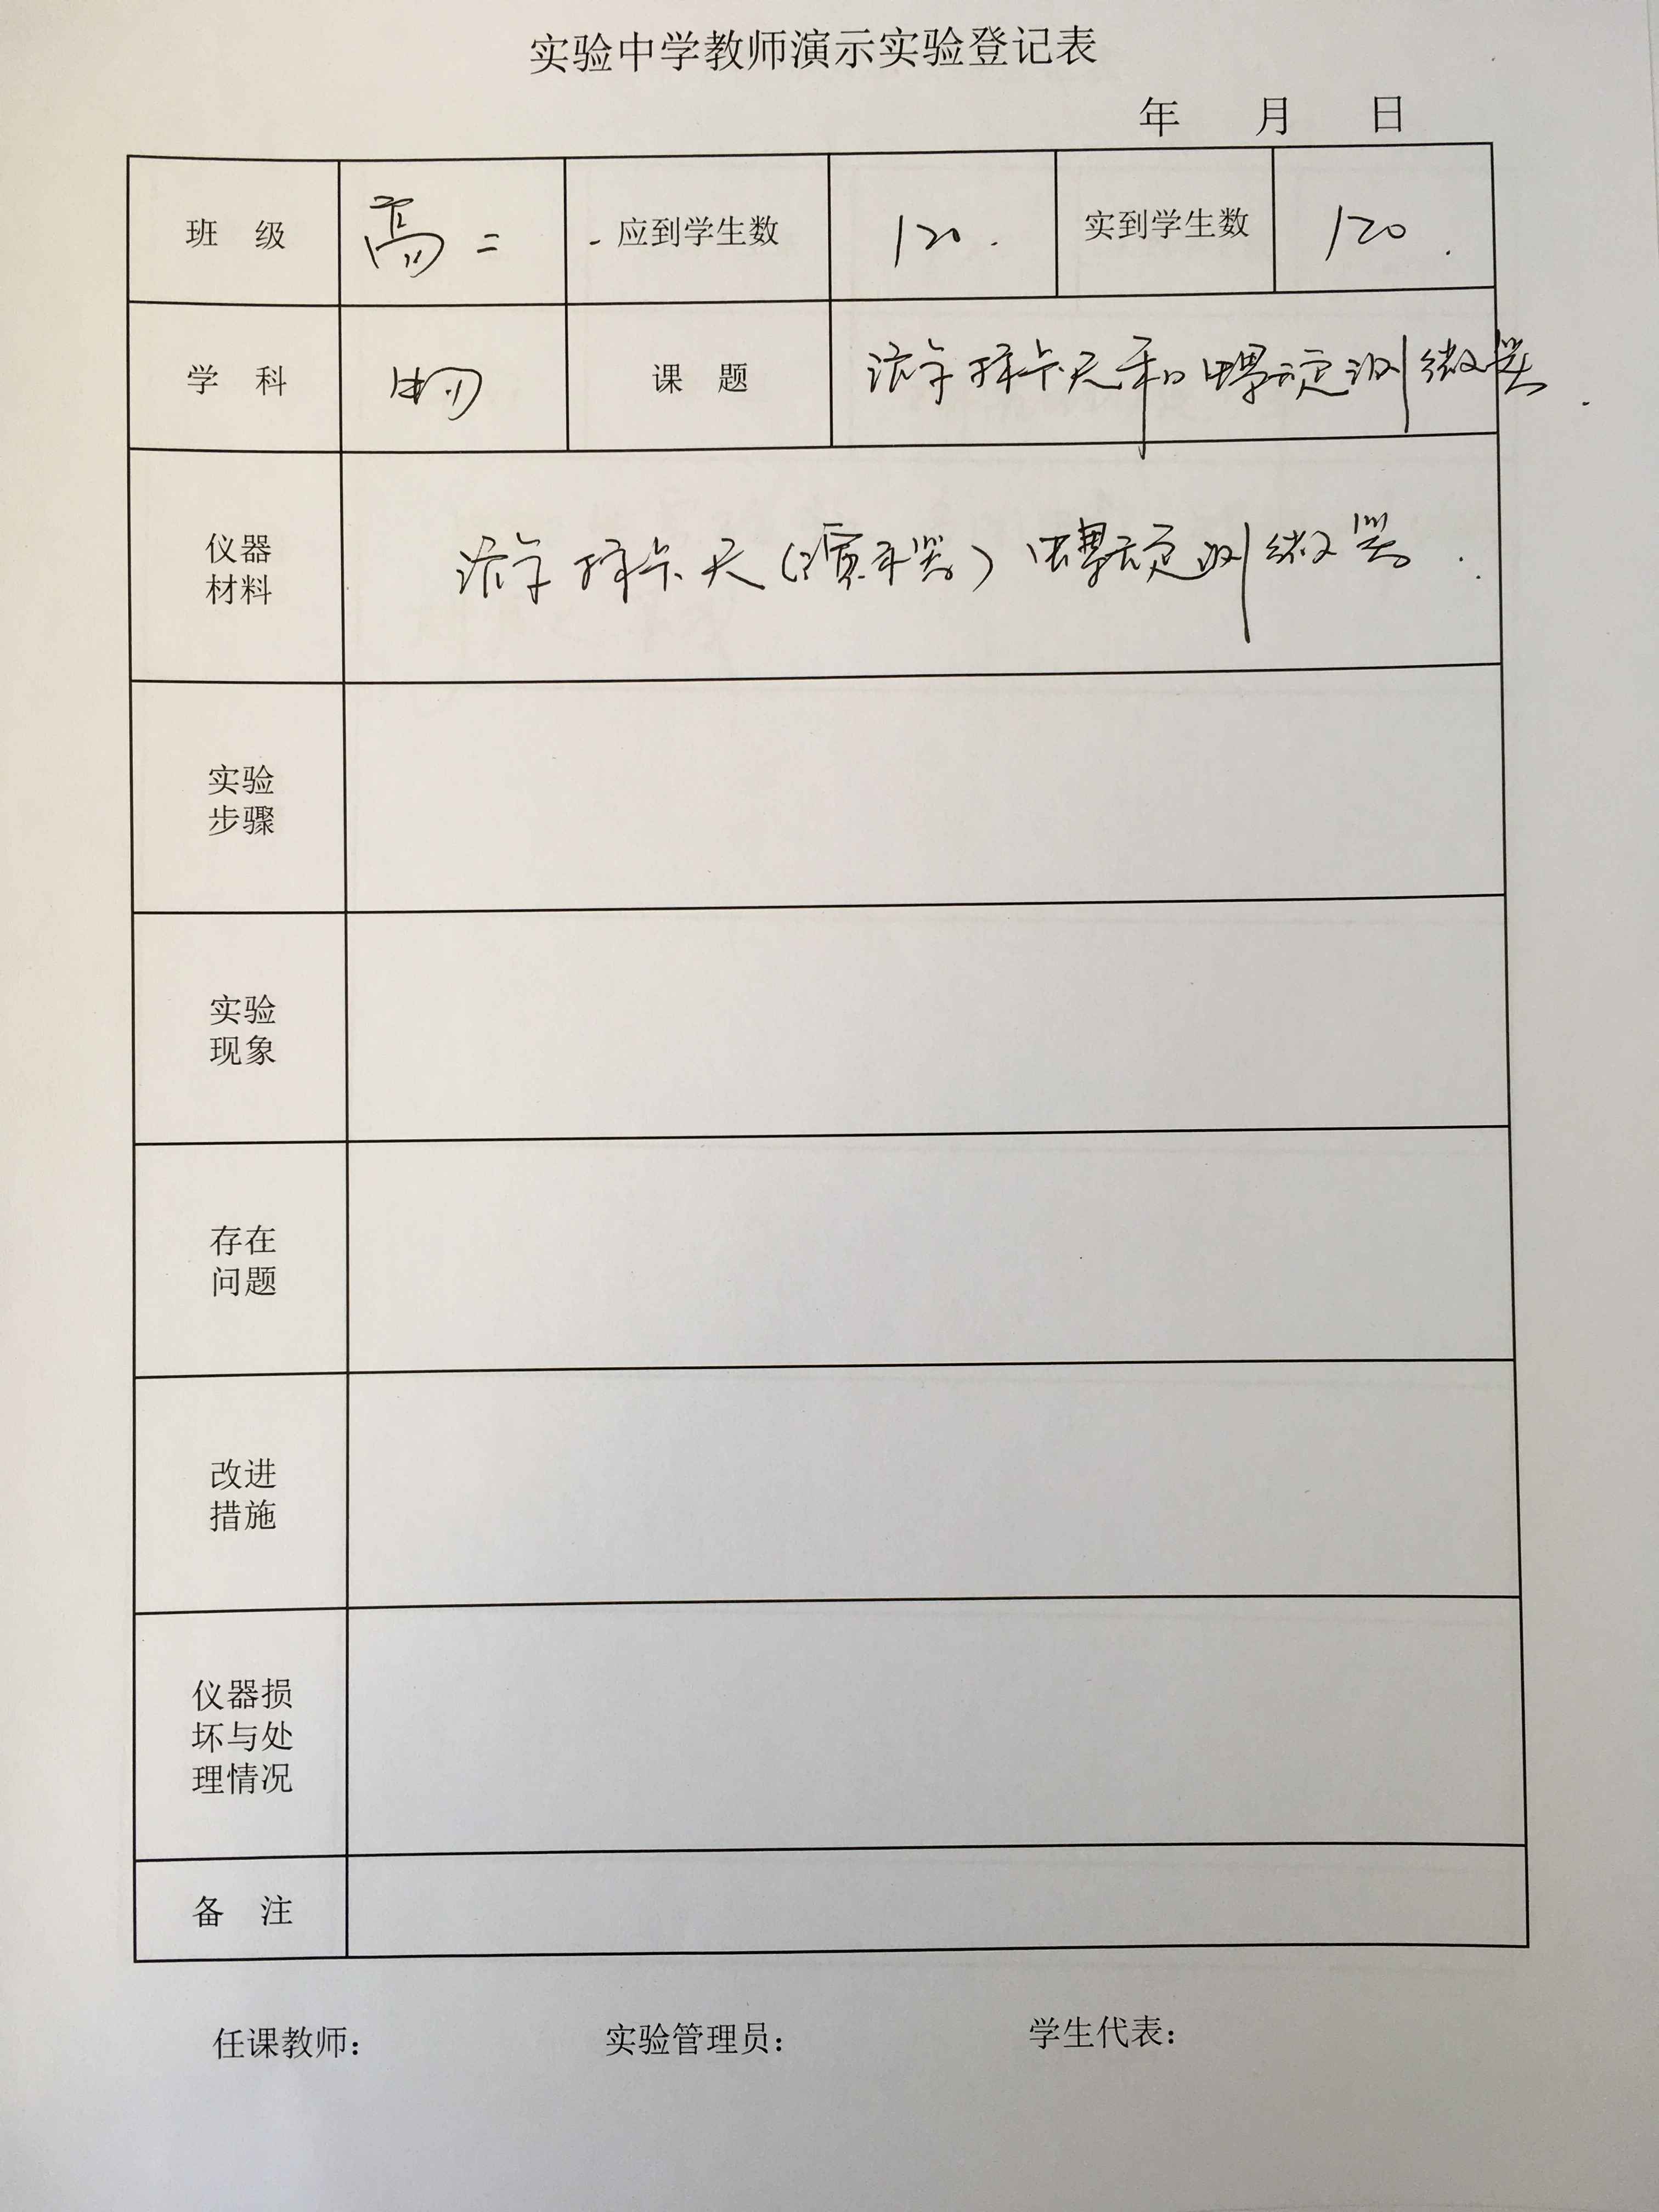 实验中学教师演示实验登记表
年 月 日
班 级 高二. 应到学生数 120. 实到学生数 120.
学 科 物 课 题 游标卡尺和螺旋测微器.
仪器
材料
游标卡尺(演示器) 螺旋测微器.
实验
步骤
实验
现象
存在
问题
改进
措施
仪器损
坏与处
理情况
备 注
任课教师: 实验管理员: 学生代表: